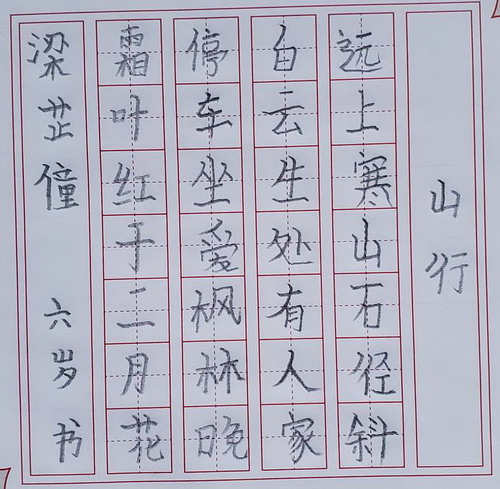 山行
远上寒山石径斜
白云生处有人家
停车坐爱枫林晚
霜叶红于二月花
梁芷僮 六岁书